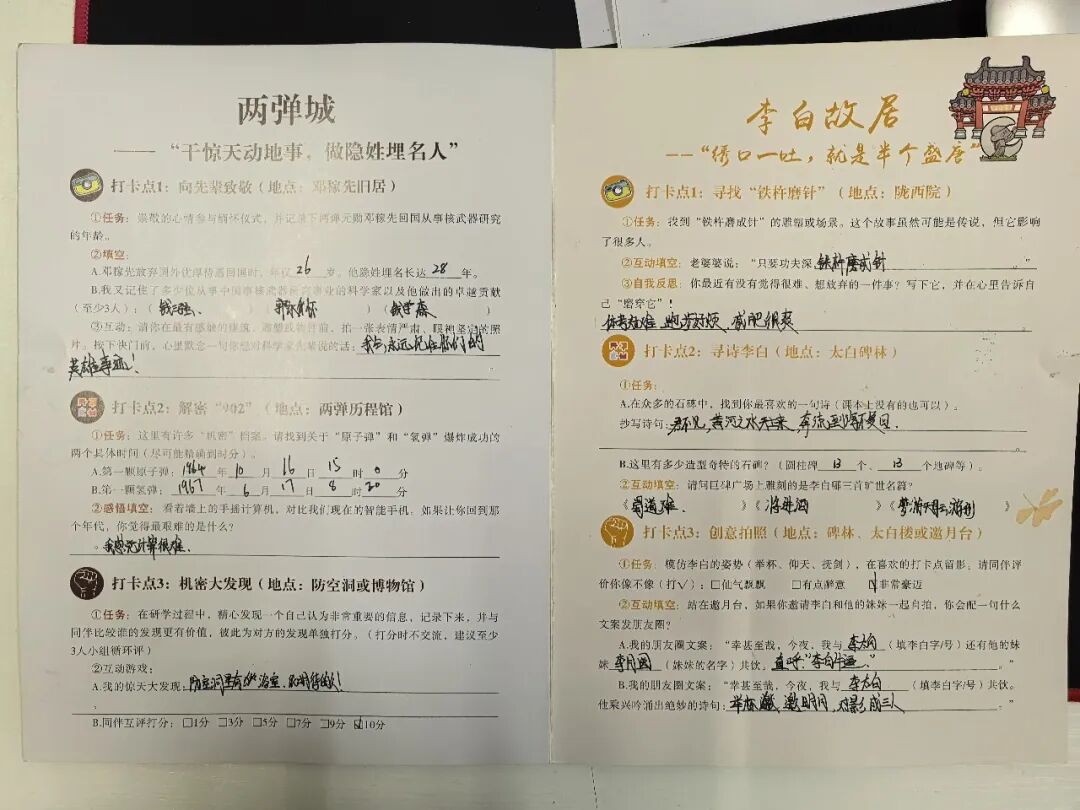 两弹城
——“干惊天动地事，做隐姓埋名人”
打卡点1：向先辈致敬（地点：邓稼先旧居）
①任务：崇敬的心情参与缅怀仪式，并记录下两弹元勋邓稼先回国从事核武器研究
的年龄。
②填空：
A.邓稼先放弃国外优厚待遇回国时，年仅 26 岁。他隐姓埋名长达 28 年。
B.我又记住了多少位从事中国事核武器研究事业的科学家以及他做出的卓越贡献
（至少3人）：（钱三强、）（郭永怀）（钱学森）
③互动：请你在最有感触的建筑、雕塑或物件前，拍一张表情严肃、眼神坚定的照
片。按下快门前，心里默念一句你想对科学家先辈说的话：我会永远记住你们的
英雄事迹！
打卡点2：解密“902”（地点：两弹历程馆）
①任务：这里有许多“机密”档案。请找到关于“原子弹”和“氢弹”爆炸成功的
两个具体时间（尽可能精确到时分）。
A.第一颗原子弹：1964 年 10 月 16 日 15 时 0 分
B.第一颗氢弹：1967 年 6 月 17 日 8 时 20 分
②感悟填空：看着墙上的手摇计算机，对比我们现在的智能手机，如果让你回到那
个年代，你觉得最艰难的是什么？
我感觉计算很难。
打卡点3：机密大发现（地点：防空洞或博物馆）
①任务：在研学过程中，精心发现一个自己认为非常重要的信息，记录下来，并与
同伴比较谁的发现更有价值，彼此为对方的发现单独打分。（打分时不交流，建议至少
3人小组循环评）
②互动游戏：
A.我的惊天大发现：防空洞里有
B.同伴互评打分：□1分 □3分 □5分 □7分 □9分 ☑10分
李白故居
--“绣口一吐，就是半个盛唐”
打卡点1：寻找“铁杵磨针”（地点：陇西院）
①任务：找到“铁杵磨成针”的雕塑或场景。这个故事虽然可能是传说，但它影响
了很多人。
②互动填空：老婆婆说：“只要功夫深，铁杵磨成针。”
③自我反思：你最近有没有觉得很难、想放弃的一件事？写下它，并在心里告诉自
己“磨穿它”！
体考好难 跑步好烦，减肥很
打卡点2：寻诗李白（地点：太白碑林）
①任务：
A.在众多的石碑中，找到你最喜欢的一句诗（课本上没有的也可以）。
抄写诗句：君不见，黄河之水天上来，奔流到海不复回。
B.这里有多少造型奇特的石碑？（圆柱碑 13 个、 13 个地碑等）。
②互动填空：请问巨碑广场上雕刻的是李白哪三首旷世名篇？
《蜀道难》《将进酒》《梦游天姥吟》
打卡点3：创意拍照（地点：碑林、太白楼或邀月台）
①任务：模仿李白的姿势（举杯、仰天、抚剑），在喜欢的打卡点留影。请同伴评
价你像不像（打√）：□仙气飘飘 □有点醉意 ☑非常豪迈
②互动填空：站在邀月台，如果你邀请李白和他的妹妹一起自拍，你会配一句什么
文案发朋友圈？
A.我的朋友圈文案：“幸甚至哉，今夜，我与 李太白（填李白字/号）还有他的妹
妹 李月圆（妹妹的名字）共饮，直呼：“李白牛逼”。”
B.我的朋友圈文案：“幸甚至哉，今夜，我与 李太白（填李白字/号）共饮。
他乘兴吟诵出绝妙的诗句：举杯邀明月，对影成三人”